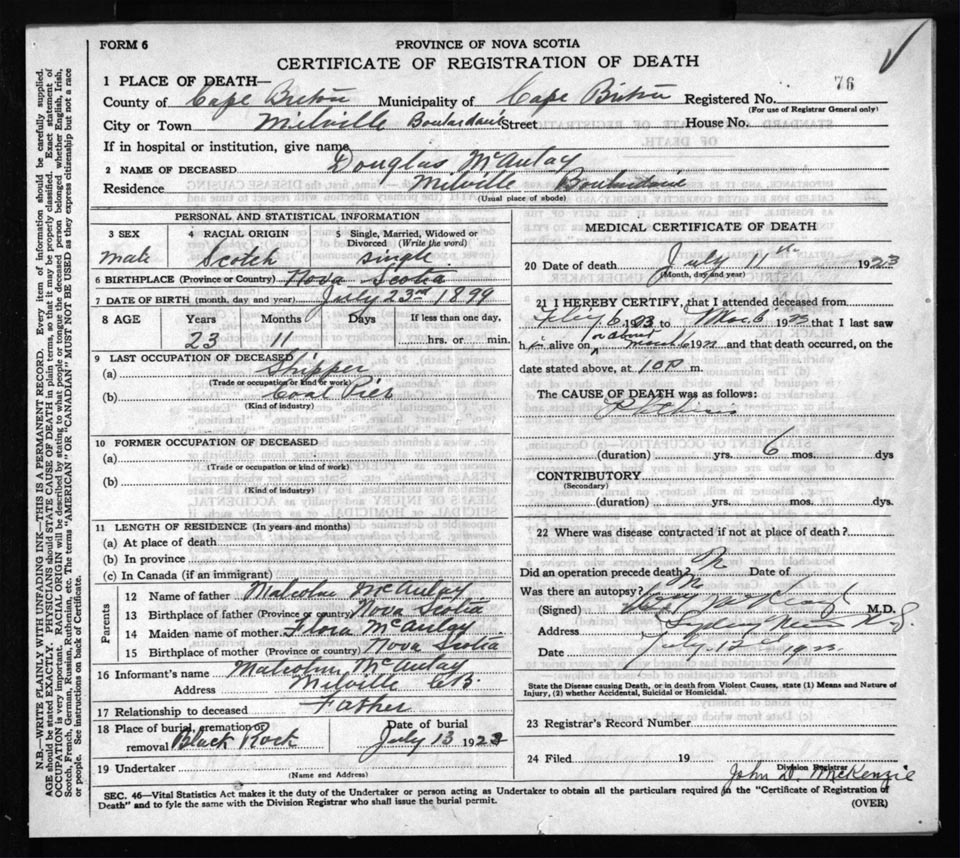 FORM 6
PROVINCE OF NOVA SCOTIA
CERTIFICATE OF REGISTRATION OF DEATH
76
1 PLACE OF DEATH—
County of Cape Breton Municipality of Cape Breton Registered No.
(For use of Registrar General only)
City or Town Milville Boulardarie Street House No.
If in hospital or institution, give name
2 NAME OF DECEASED Douglas McAulay
Residence Milville Boulardarie
(Usual place of abode)
PERSONAL AND STATISTICAL INFORMATION
3 SEX 4 RACIAL ORIGIN 5 Single, Married, Widowed or Divorced (Write the word)
male Scotch single
6 BIRTHPLACE (Province or Country) Nova Scotia
7 DATE OF BIRTH (month, day and year) July 23rd 1899
8 AGE Years Months Days If less than one day,
23 11 hrs. or min.
9 LAST OCCUPATION OF DECEASED
(a) Shipper
(Trade or occupation or kind of work)
(b) Coal Pier
(Kind of industry)
10 FORMER OCCUPATION OF DECEASED
(a)
(Trade or occupation or kind of work)
(b)
(Kind of industry)
11 LENGTH OF RESIDENCE (In years and months)
(a) At place of death
(b) In province
(c) In Canada (if an immigrant)
Parents
12 Name of father Malcolm McAulay
13 Birthplace of father (Province or country) Nova Scotia
14 Maiden name of mother Flora McAulay
15 Birthplace of mother (Province or country) Nova Scotia
16 Informant's name Malcolm McAulay
Address Milville C.B.
17 Relationship to deceased Father
18 Place of burial, cremation or removal Black Rock Date of burial July 13 1923
19 Undertaker
(Name and Address)
MEDICAL CERTIFICATE OF DEATH
20 Date of death July 11th 1923
(Month, day and year)
21 I HEREBY CERTIFY, that I attended deceased from
6 1923 to 1923 that I last saw
h alive on or about March 6 1923 and that death occurred, on the
date stated above, at 10 P m.
The CAUSE OF DEATH was as follows:
Phthisis
(duration) yrs. 6 mos. dys
CONTRIBUTORY
(Secondary)
(duration) yrs. mos. dys.
22 Where was disease contracted if not at place of death?
Did an operation precede death? No Date of
Was there an autopsy? No
(Signed) M.D.
Address Sydney Mines N.S.
Date July 12 1923
State the Disease causing Death, or in death from Violent Causes, state (1) Means and Nature of Injury, (2) whether Accidental, Suicidal or Homicidal.
23 Registrar's Record Number
24 Filed 19
Division Registrar
John D. McKenzie
SEC. 46—Vital Statistics Act makes it the duty of the Undertaker or person acting as Undertaker to obtain all the particulars required in the "Certificate of Registration of
Death" and to fyle the same with the Division Registrar who shall issue the burial permit.
(OVER)
N.B.—WRITE PLAINLY WITH UNFADING INK—THIS IS A PERMANENT RECORD. Every item of information should be carefully supplied.
AGE should be stated EXACTLY. PHYSICIANS should STATE CAUSE OF DEATH in plain terms, so that it may be properly classified. Exact statement of
OCCUPATION is very important. RACIAL ORIGIN will be described by stating to what people or tongue the deceased person belonged whether English, Irish,
Scotch, French, German, Russian, Ruthenian, etc. The terms "AMERICAN" OR "CANADIAN" MUST NOT BE USED as they express citizenship but not a race
or people. See instructions on back of Certificate.